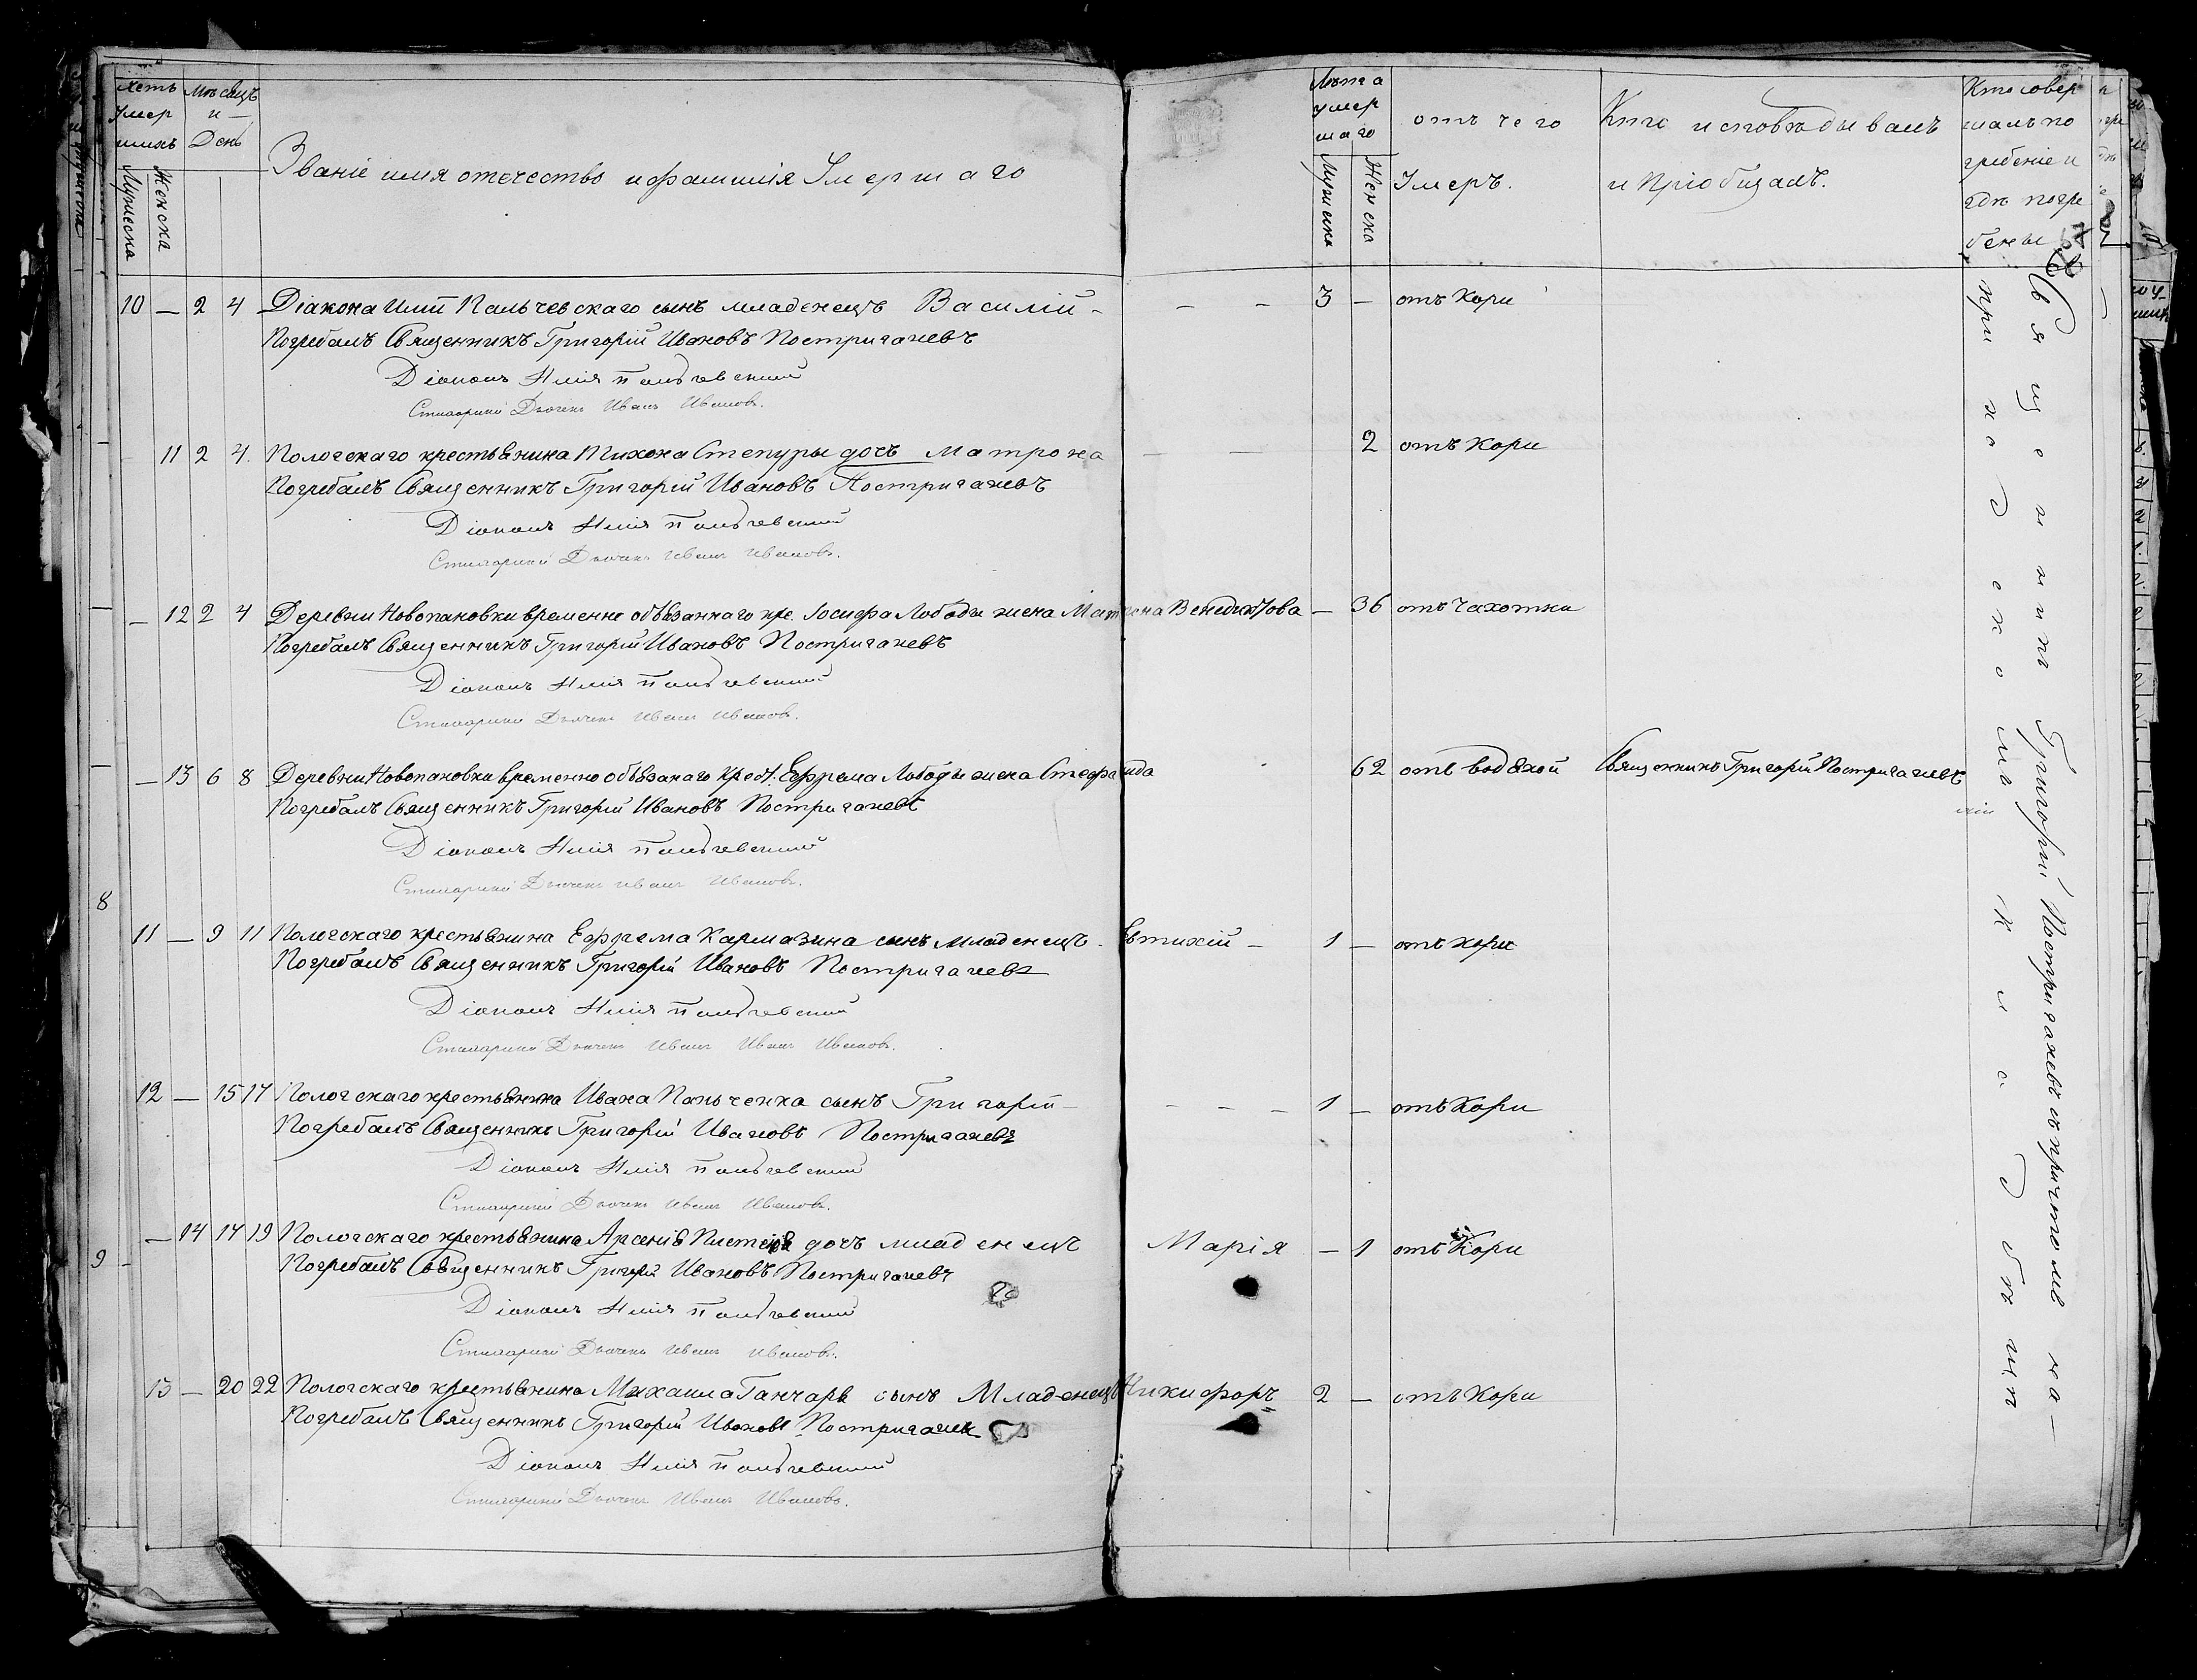 Счетъ умершихъ
Мѣсяцъ и День
Званіе имя отечество и фамилія Умершаго
Лѣта умершаго
отъ чего Умеръ.
Кто исповѣдывалъ и Пріобщалъ.
Кто совершалъ погребеніе и гдѣ погребены
Мужеска Женска
Мужеска Женска
10 — 2 4 Діакона Иліи Пальчевскаго сынъ младенецъ Василій - — — 3 — отъ Кори
Погребалъ Священникъ Григорій Ивановъ Постригачевъ
Діаконъ Илія Пальчевский
Стихарный Дьячекъ Иванъ Ивановъ.
11 2 4. Пологскаго крестьянина Тихона Степуры дочъ Матрона — — 2 отъ Кори
Погребалъ Священникъ Григорій Ивановъ Постригачевъ
Діаконъ Илія Пальчевский
Стихарный Дьячекъ Иванъ Ивановъ.
— 12 2 4 Деревни Новопановки временно обязаннаго кре. Іосифа Лободы жена Матрона Венедиктова — 36 отъ Чахотки
Погребалъ Священникъ Григорій Ивановъ Постригачевъ
Діаконъ Илія Пальчевский
Стихарный Дьячекъ Иванъ Ивановъ.
— 13 6 8 Деревни Новопановки временно обязанаго Крест. Ефрема Лободы жена Стефанида 62 отъ водяной Священникъ Григорій Постригачевъ
Погребалъ Священникъ Григорій Ивановъ Постригачевъ
Діаконъ Илія Пальчевский
Стихарный Дьячекъ Иванъ Ивановъ.
8
11 — 9 11 Пологскаго крестьянина Ефрема Кармазина сынъ Младенецъ - Евтихій — 1 — отъ кори
Погребалъ Священникъ Григорій Ивановъ Постригачевъ
Діаконъ Илія Пальчевский
Стихарный Дьячекъ Иванъ Иванъ Ивановъ.
12 — 15 17 Пологскаго крестьянина Ивана Папченка сынъ Григорій — — — — 1 — отъ Кори
Погребалъ Священникъ Григорій Ивановъ Постригачевъ
Діаконъ Илія Пальчевский
Стихарный Дьячекъ Иванъ Ивановъ.
— 14 17 19 Пологскаго крестьянина Арсенія дочъ младенецъ Марія — 1 отъ Кори
Погребалъ Священникъ Григорій Ивановъ Постригачевъ
Діаконъ Илія Пальчевский
Стихарный Дьячекъ Иванъ Ивановъ.
9
13 — 20 22 Пологскаго крестьянина Михаила Ганчаря сынъ Младенецъ Никифоръ 2 — отъ Кори
Погребалъ Священникъ Григорій Ивановъ Постригачевъ
Діаконъ Илія Пальчевский
Стихарный Дьячекъ Иванъ Ивановъ.
Священникъ Григорій Постригачевъ съ причтомъ на —
приходскомъ кладбищѣ